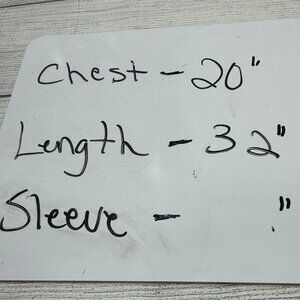 Chest - 20"
Length - 32"
Sleeve -    "